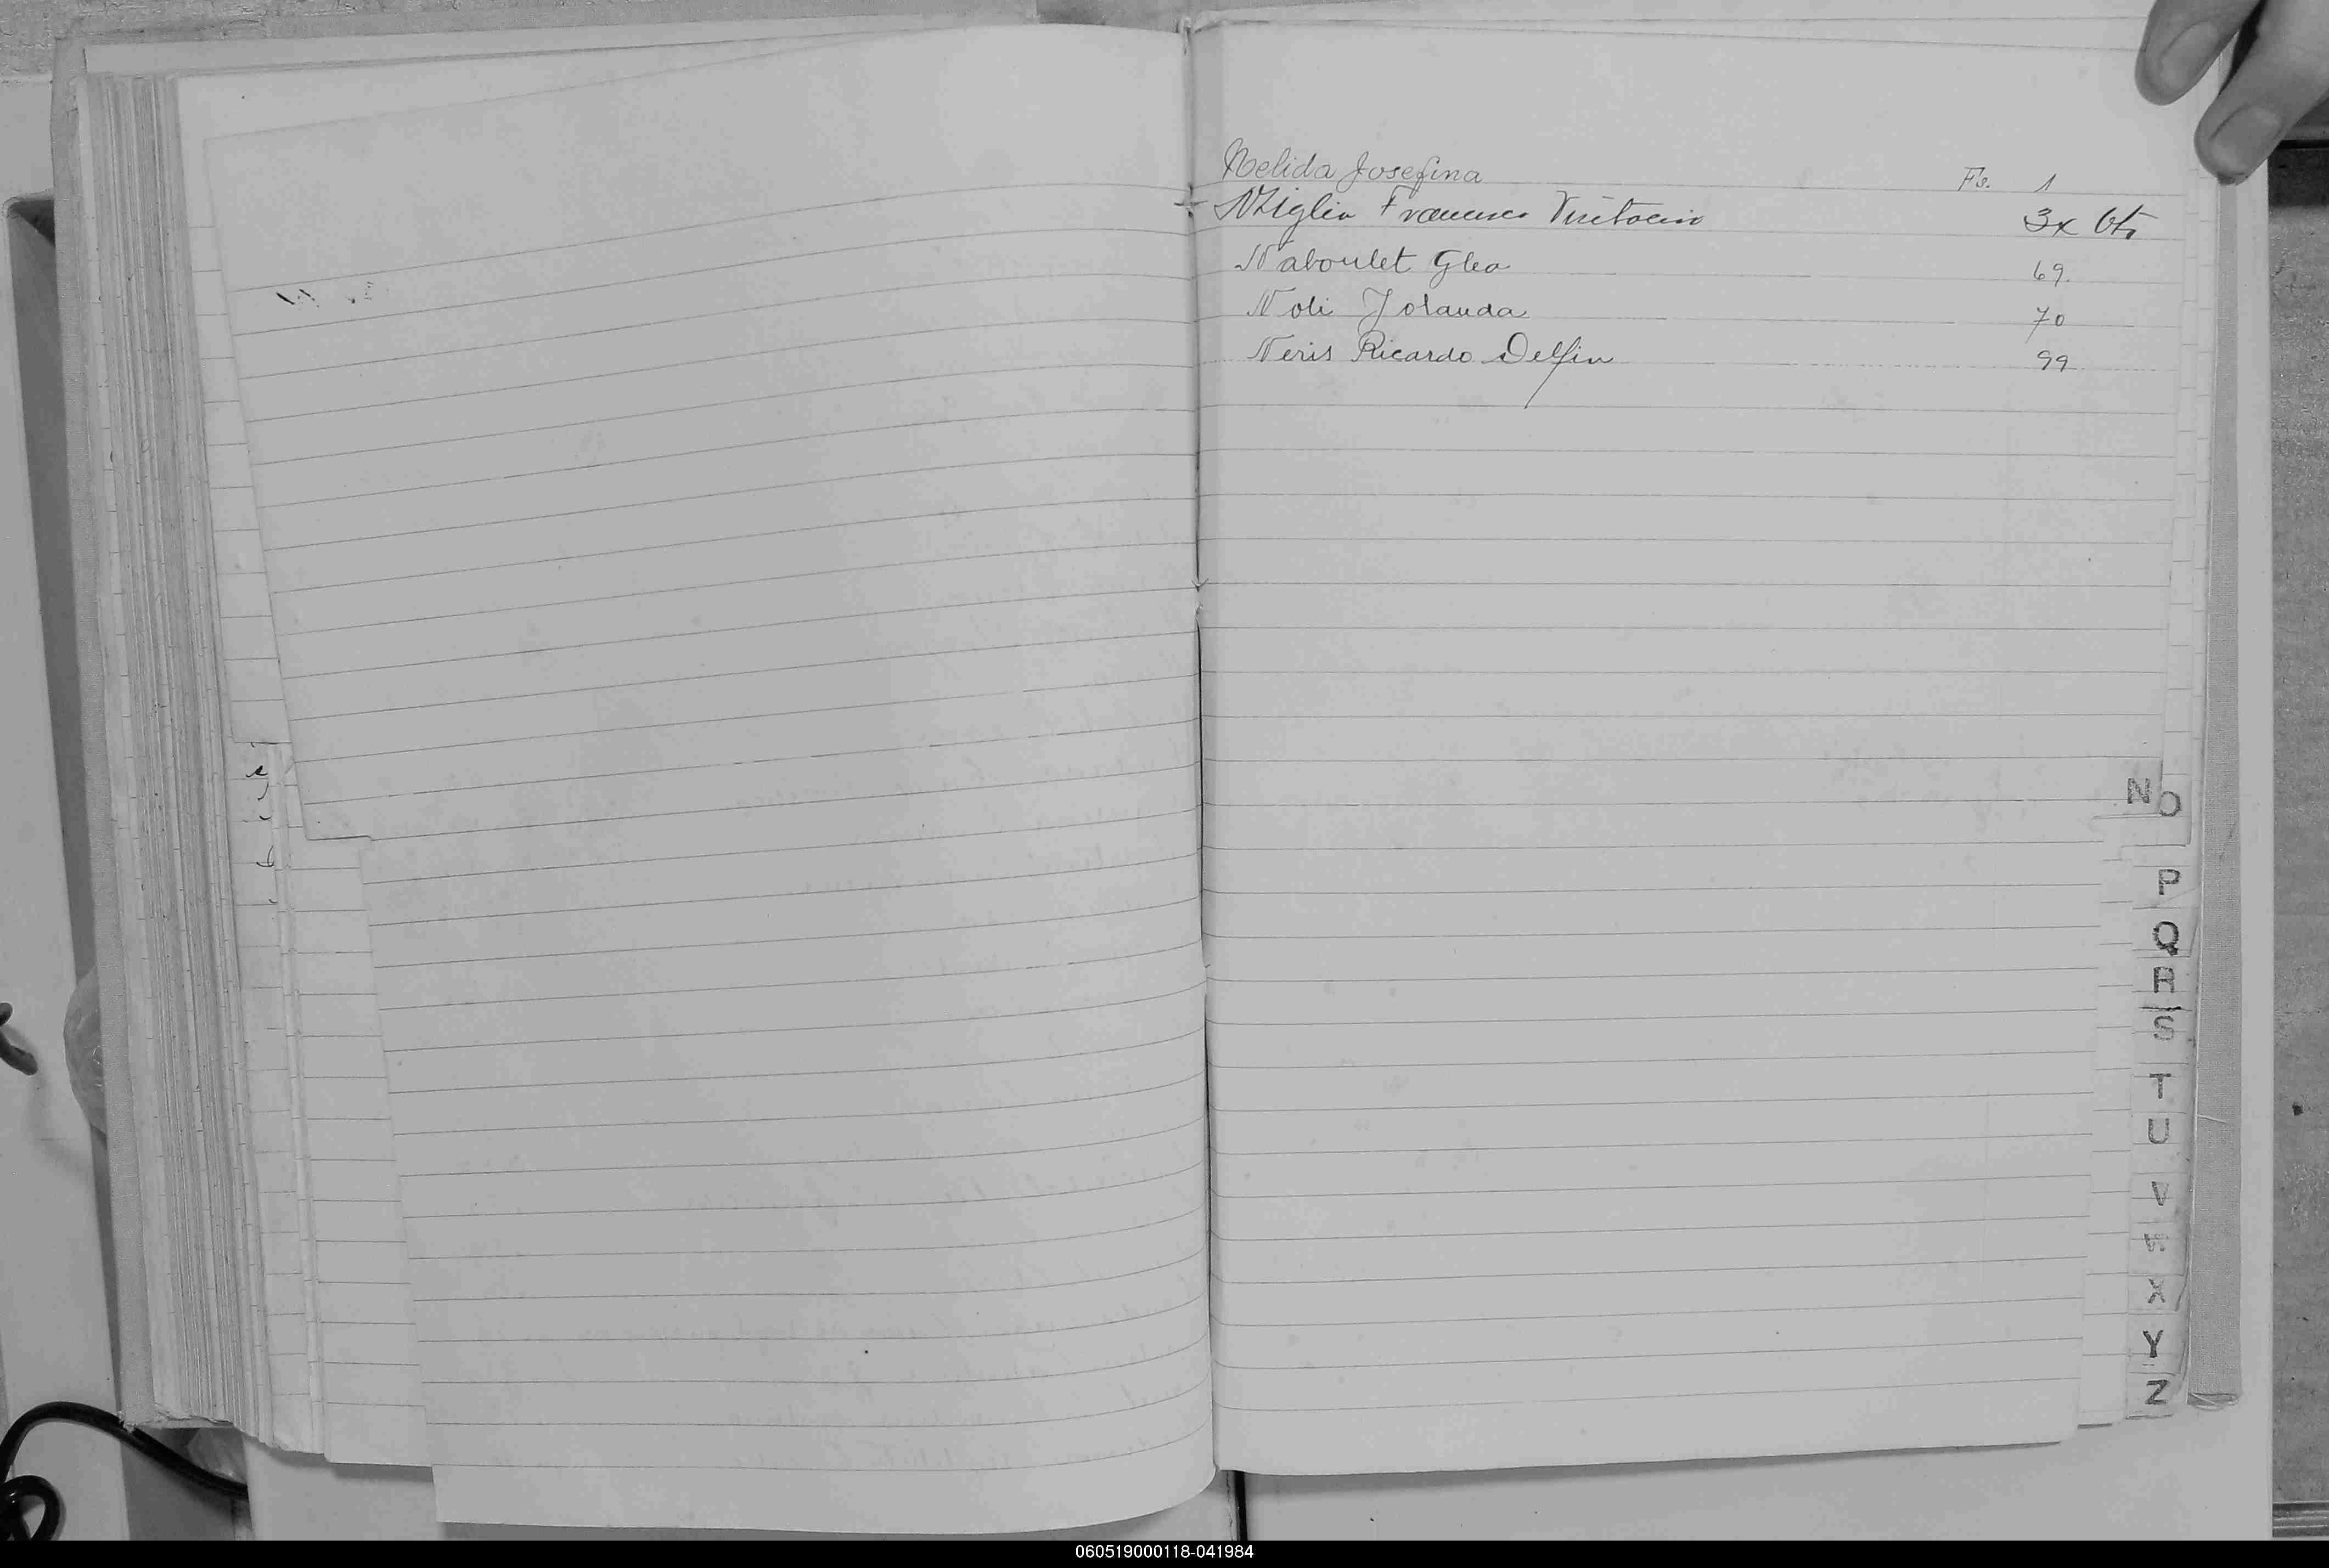 Nelida Josefina Fs. 1
Francisco 3x
Naboulet Glea 69
Noli Jolanda 70
Neris Ricardo Delfin 99
N
O
P
Q
R
S
T
U
V
W
X
Y
Z
060519000118-041984